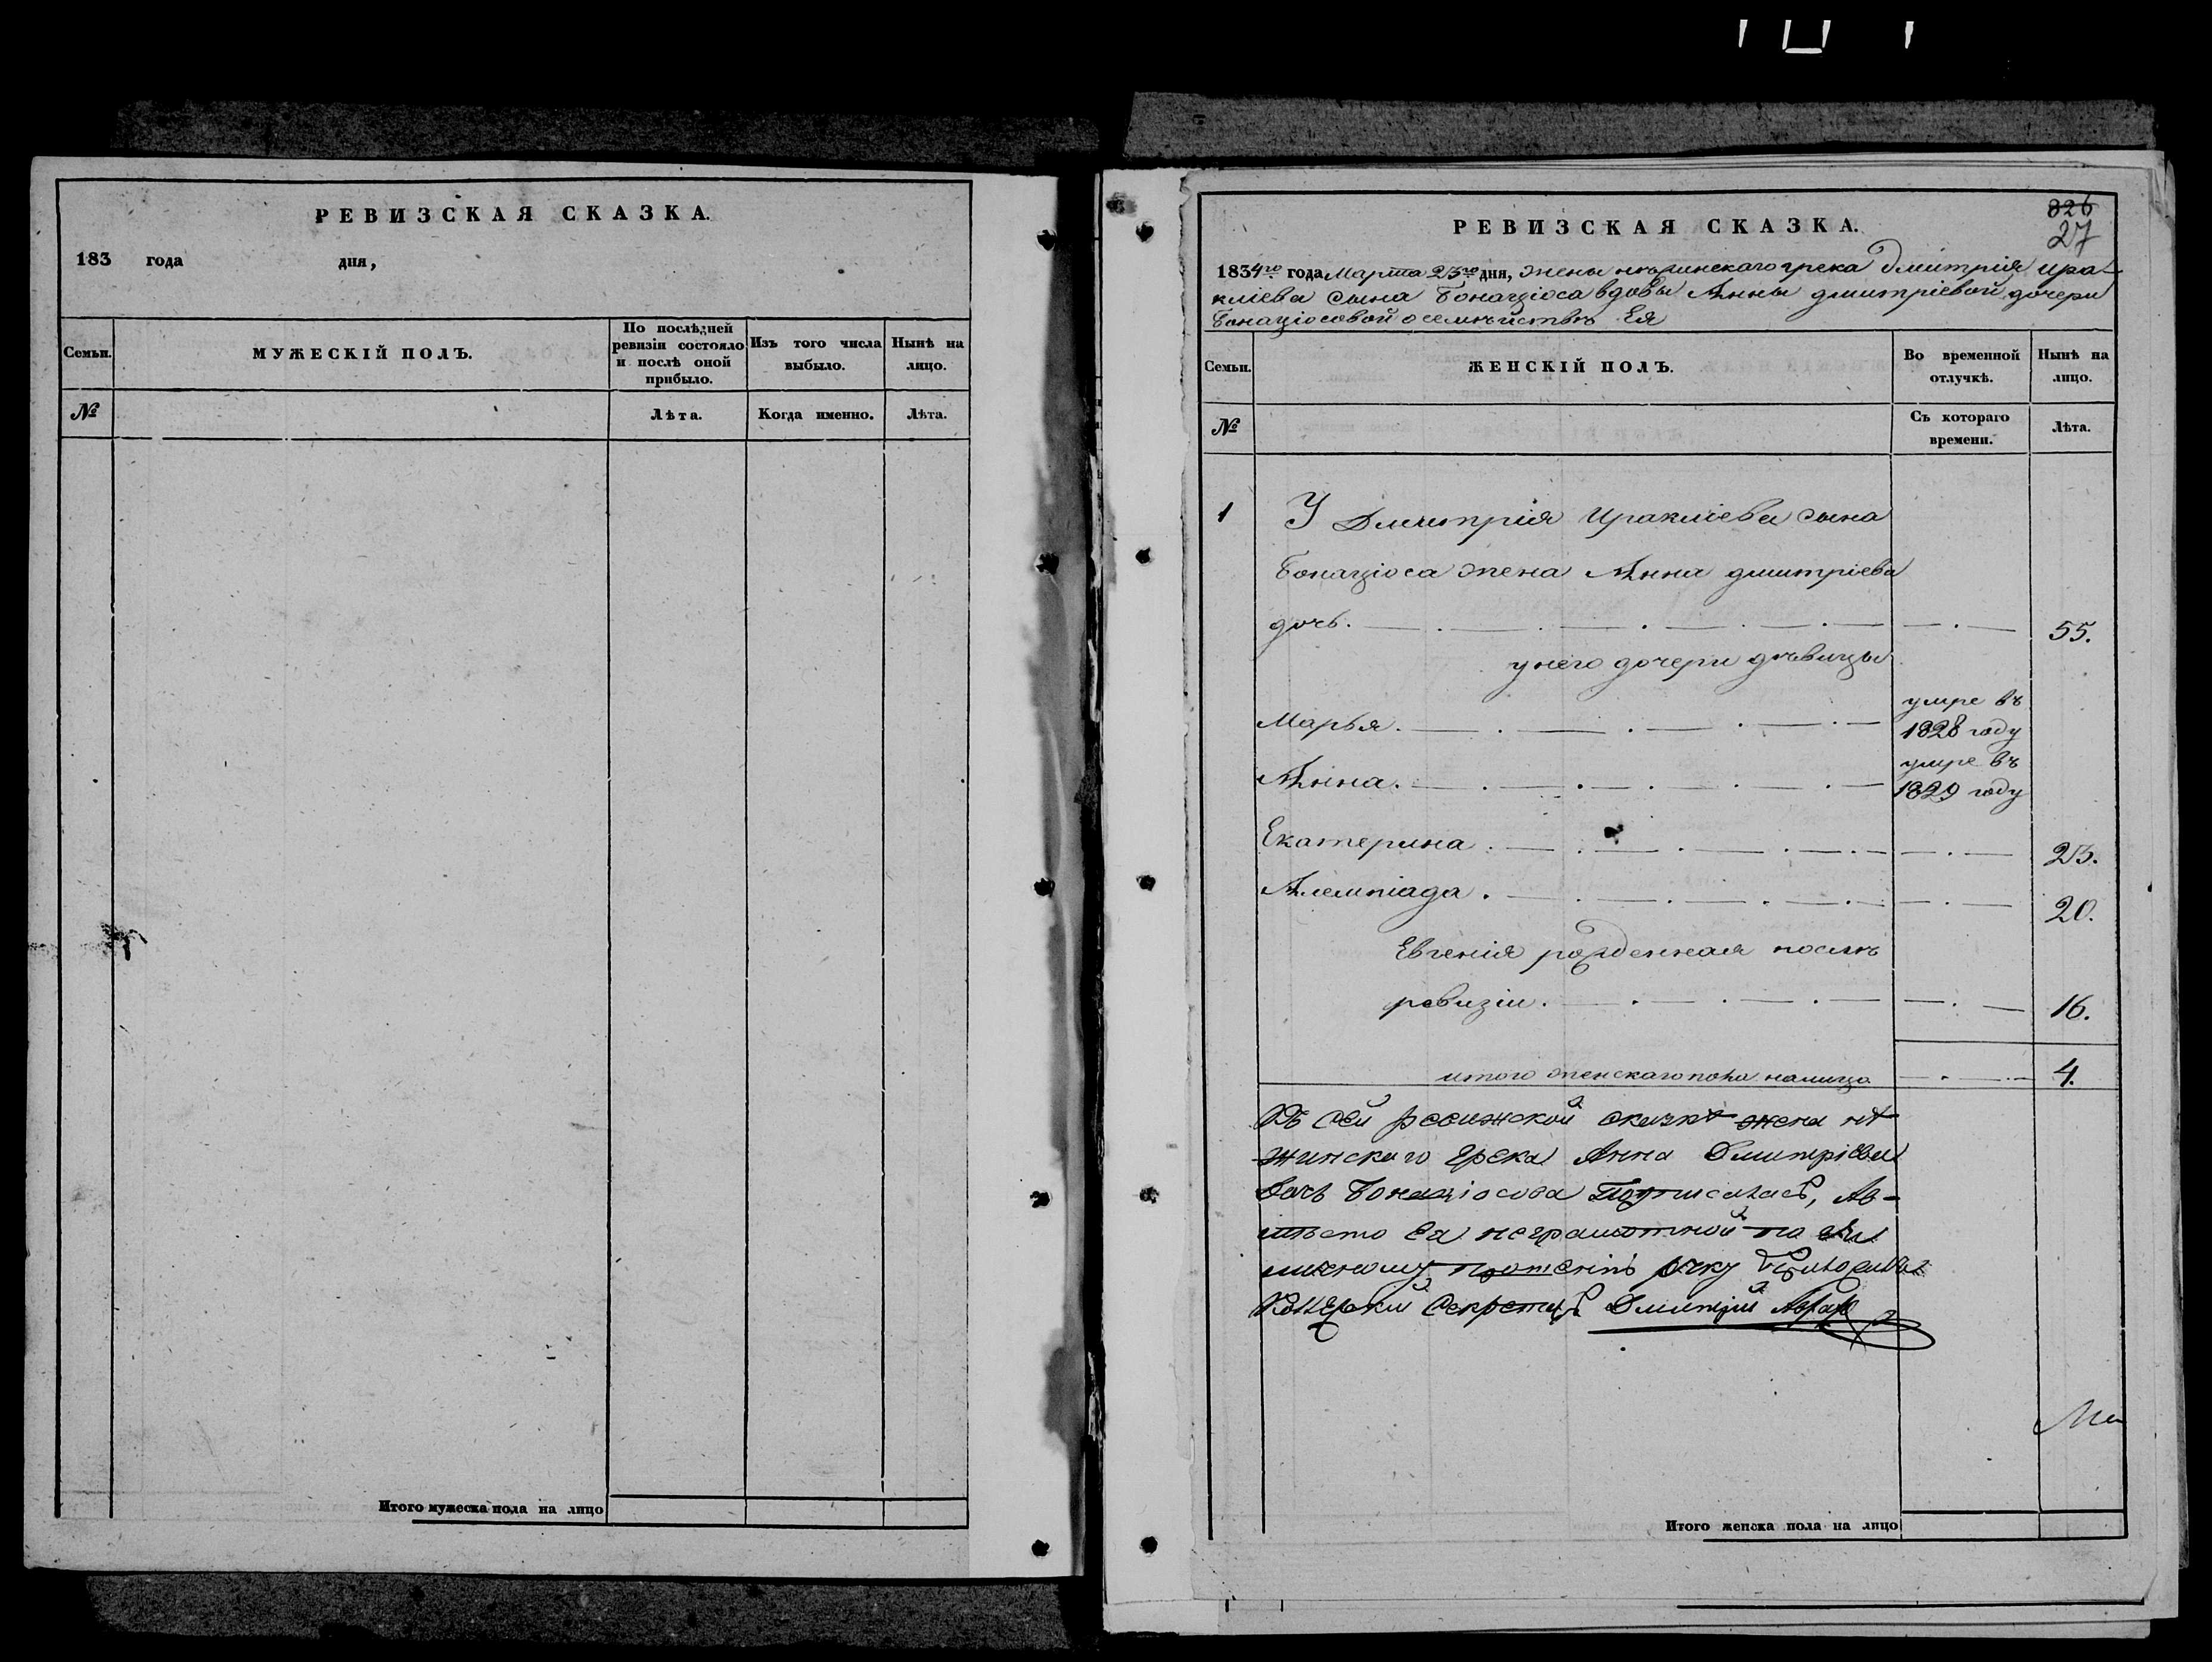 РЕВИЗСКАЯ СКАЗКА.
183 года дня,
Семьи.
МУЖЕСКІЙ ПОЛЪ.
По послѣдней
ревизіи состояло
и послѣ оной
прибыло.
Изъ того числа
выбыло.
Нынѣ на
лицо.
№
Лѣта.
Когда именно.
Лѣта.
Итого мужеска пола на лицо
326
27
РЕВИЗСКАЯ СКАЗКА.
1834го года Марта 23го дня, жены нѣжинскаго грека Дмитрія Ира-
кліева сына Бонаціоса вдовы Анны дмитріевой дочери
Бонаціосовой о семействѣ Ея
Семьи.
ЖЕНСКІЙ ПОЛЪ.
Во временной
отлучкѣ.
Нынѣ на
лицо.
№
Съ котораго
времени.
Лѣта.
1 У Дмитрія Ираклiева сына
Бонаціоса жена Анна дмитріева
дочь. 55.
у него дочери дѣвицы
Марья. умре въ
1828 году
Анна. умре въ
1829 году
Екатерина. 23.
Алемпіада. 20.
Евгенія рожденная послѣ
ревизіи. 16.
итого женскаго пола налицо 4.
Къ сей ревижской сказкѣ жена нѣ
жинскаго Грека Анна Дмитріева
дочь Бонаціосова Подписалась, Ав-
мѣсто Ея неграмотной по Ея
личному прошенію руку
Секретарь Дмитрій
Итого женска пола на лицо